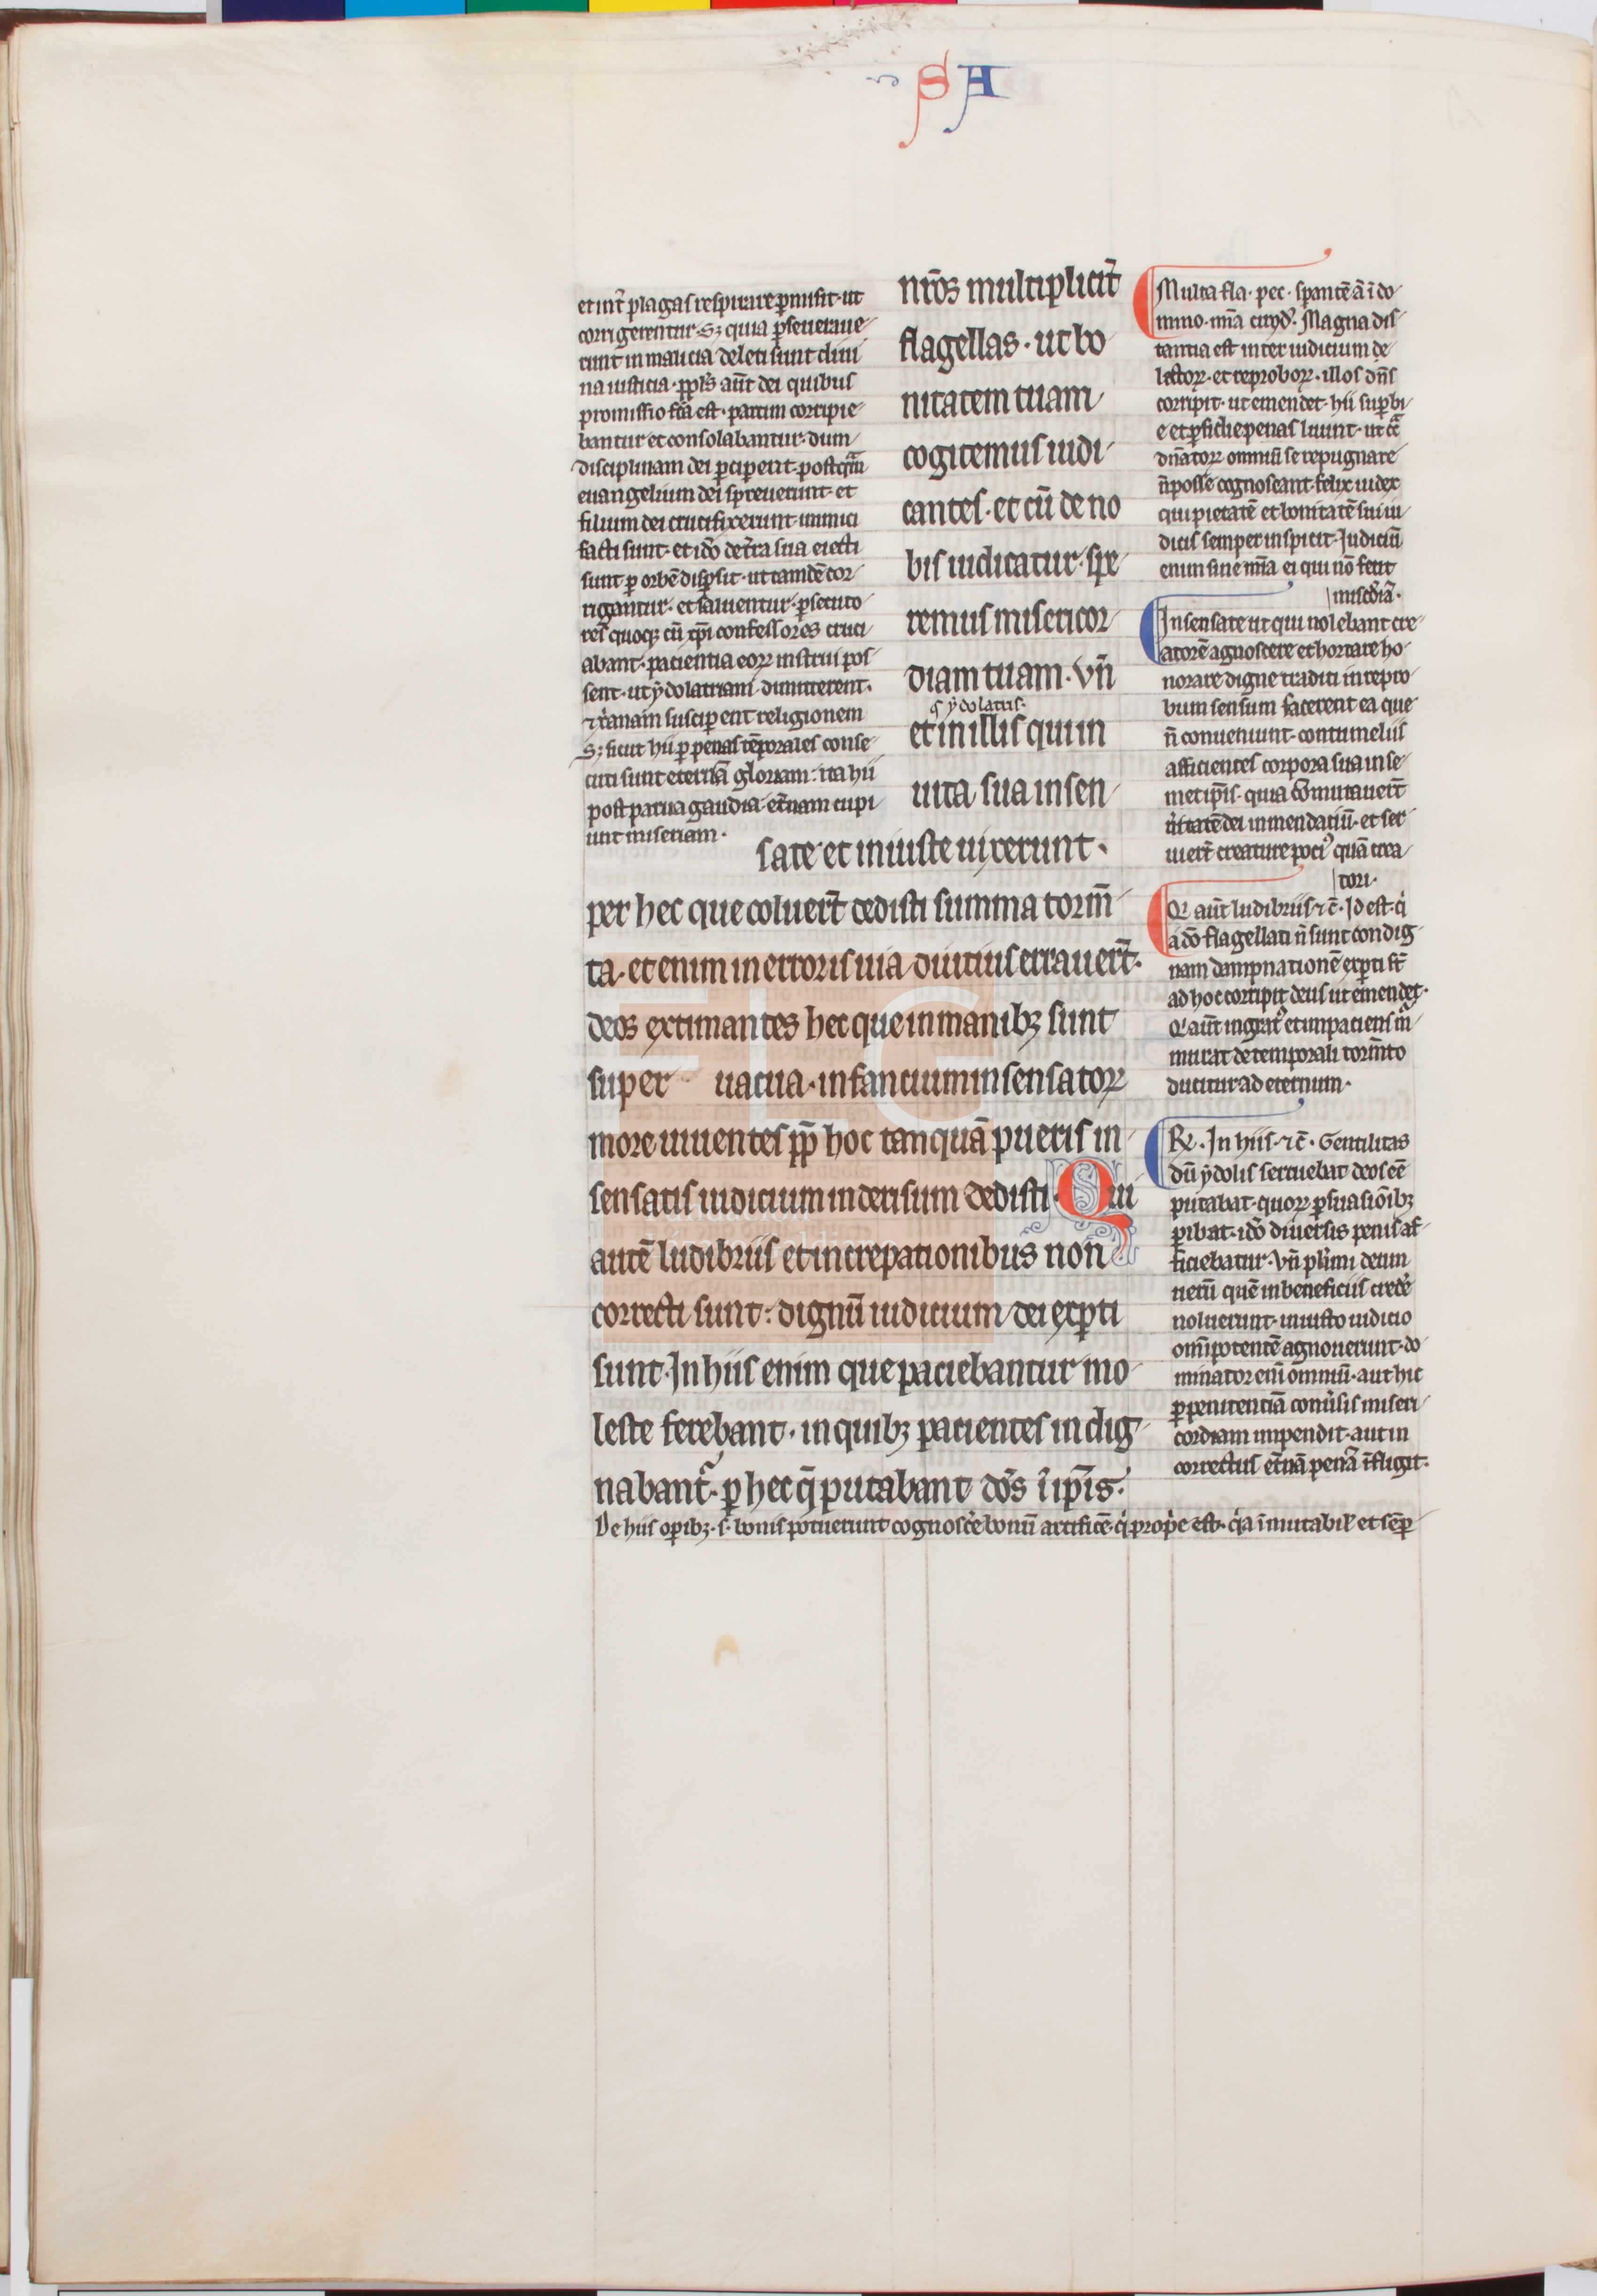 SA
et int̄ plagas respirare ꝑmisit· ut
corrigerentur· Sꝫ quia ꝑseueraue
runt in malicia deleti sunt diui
na iusticia· ppl̄s aūt dei quibus
promissio fc̄a est· partim corripie
bantur et consolabantur· dum
disciplinam dei ꝑciperent· postqᷓm
euangelium dei spreuerunt· et
filium dei crucifixerunt· inimici
facti sunt· et ido̅ de tr̄a sua eiecti
sunt ꝑ orbē disꝑsi· ut tamdē cor
rigantur· et saluentur· ꝑsecuto
res quoqꝫ cū xp̄i confessores cruci
abant· pacientia eoꝝ instrui pos
sent· ut ydolatriam dimitterent·
⁊ xr̄anam susciꝑent religionem
Sꝫ sicut hii ꝑ penas tēporales conse
cuti sunt eternā gloriam: ita hii
post parua gaudia et̄nam cupi
unt miseriam·
nr̄os multiplicit̄
flagellas· ut bo
nitatem tuam
cogitemus iudi
cantes· et cū de no
bis iudicatur· spe
remus misericor
diam tuam· Vn̄
s· ydolatris·
et in illis qui in
uita sua insen
sate et iniuste uixerunt·
per hec que coluert̄ dedisti summa torm̄
ta· et enim in erroris uia diutius errauert̄·
deos extimantes hec que in manibꝫ sunt
super uacua· infantium insensatoꝝ
more uiuentes pp̄ hoc tanquā pueris in
sensatis iudicium in derisum dedisti· Qui
autē ludibriis et increpationibus non
correcti sunt: dignū iudicium dei exꝑti
sunt· In hiis enim que paciebantur mo
leste ferebant· in quibꝫ pacientes indig
nabant᷑· ꝑ hec q̄ putabant do̅s ī ip̄is·
De hiis oꝑibꝫ· s· bonis potuerunt cognosc̄e bonū artificē· qͥ prope est· qͥa īmutabil̄ et sēꝑ
Multa fla· pec· sperantē ā ī do
mino· mīa circūd̄· Magna dis
tantia est inter iudicium de
lectoꝝ· et reproboꝝ· illos dn̄s
corripit· ut emendet· hii suꝑbi
e et ꝑfidie penas luunt· ut cᷓ
dn̄atoꝝ omnium se repugnare
n̄ posse cognoscant· felix iudex
qui pietatē et bonitatē sui iu
dicis semper inspicit· Iudiciū
enim sine mīa ei qui nō fecit
misc̄diā·
Insensate ut qui nolebant cre
atorē agnoscere et hortare ho
norare digne traditi in repro
bum sensum facerent ea que
n̄ conueniunt· contumeliis
afficientes corpora sua in se
metip̄is· quia ꝯmutauert̄
u̇itatē dei in mendatiū· et ser
uiert̄ creature pociꝰ quā crea
tori·
Q̄i aūt ludibriis ⁊c̄· Id est qͥ
a do̅ flagellati n̄ sunt condig
nam dampnationē exꝑti st̄
ad hoc corripit deus ut emendet·
Q̄i aūt ingratꝰ et impaciens m̄
murat de temporali torm̄to
ducitur ad eternum·
R̄· In hiis ⁊c̄· Gentilitas
dū ydolis seruiebat deos eē
putabat· quoꝝ ꝑsuasiōibꝫ
ꝑibat· ido̅ diuersis penis af
ficiebatur· Vn̄ pl̄imi deum
uerū quē in beneficiis cred̄e
noluerunt· in iusto iudicio
omīpotentē agnouerunt· do
minator enī omniū· aut hic
ꝑ penitentiā conu̇sis miseri
cordiam impendit· aut in
correctis et̄nā penā īfligit·